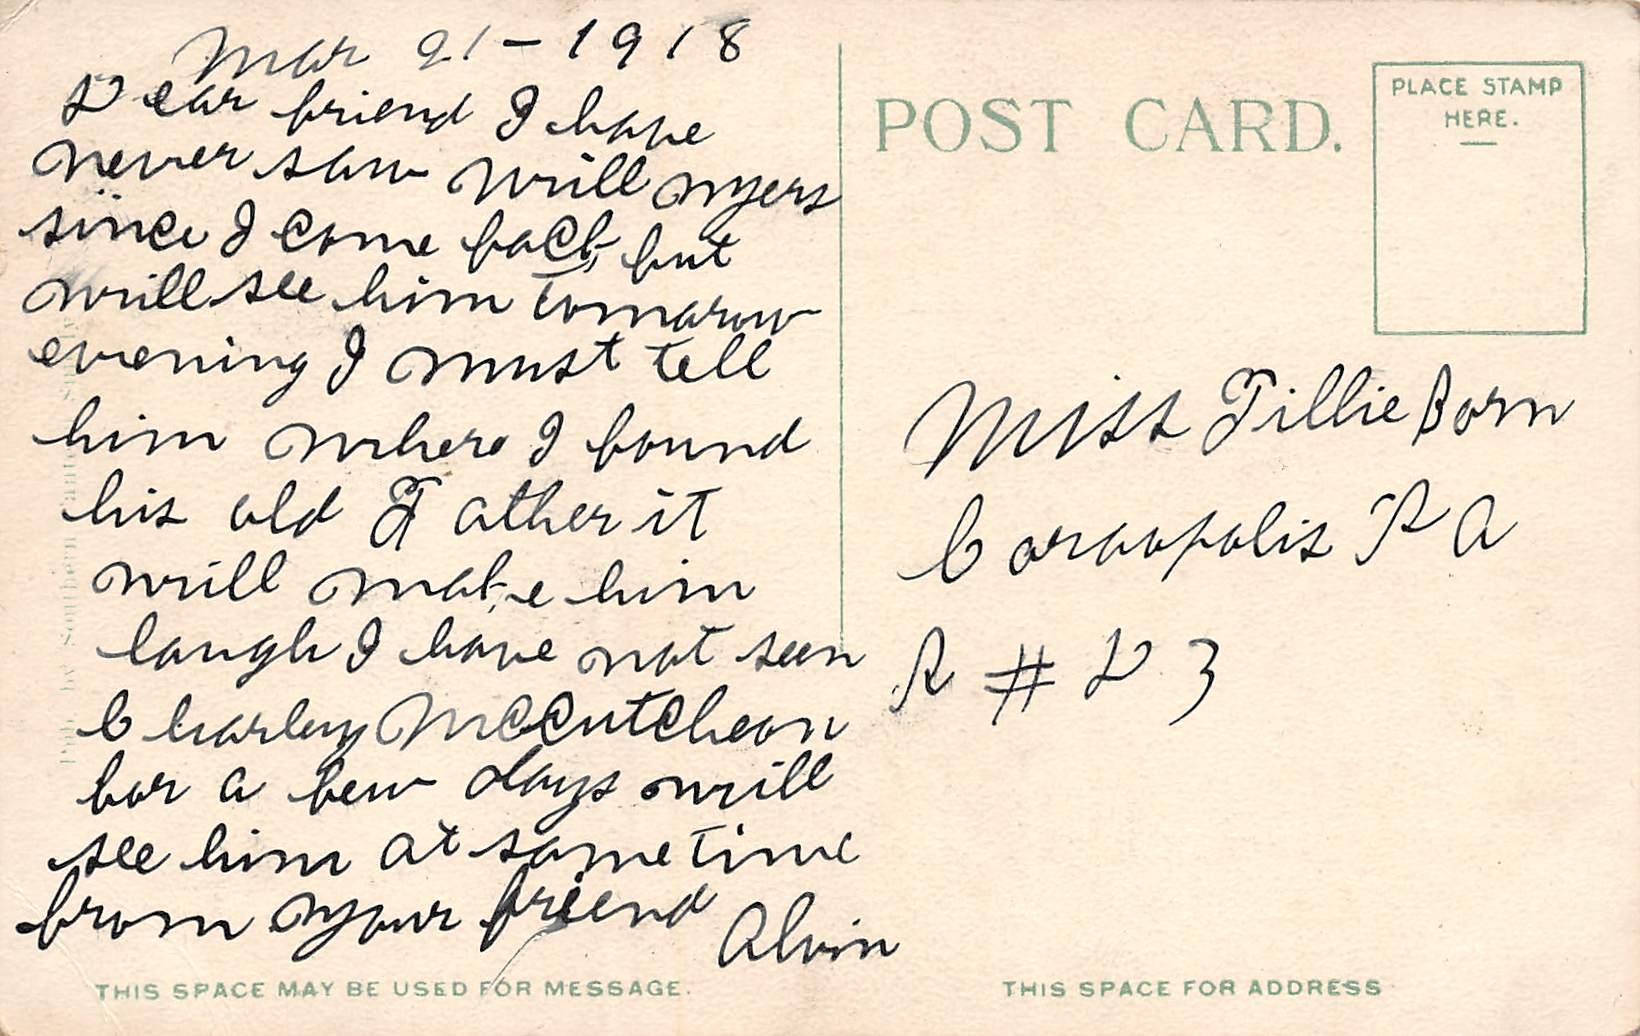 Mar 21-1918
Dear friend I have
never saw will myers
since I come back, but
will see him tomarow
evening I must tell
him where I found
his old Father it
will make him
laugh I have not seen
Charley McCutcheon
for a few days will
see him at some time
from your friend
Alvin
THIS SPACE MAY BE USED FOR MESSAGE.
POST CARD.
PLACE STAMP
HERE.
Miss Tillie Born
Coraopolis PA
R # D 3
THIS SPACE FOR ADDRESS